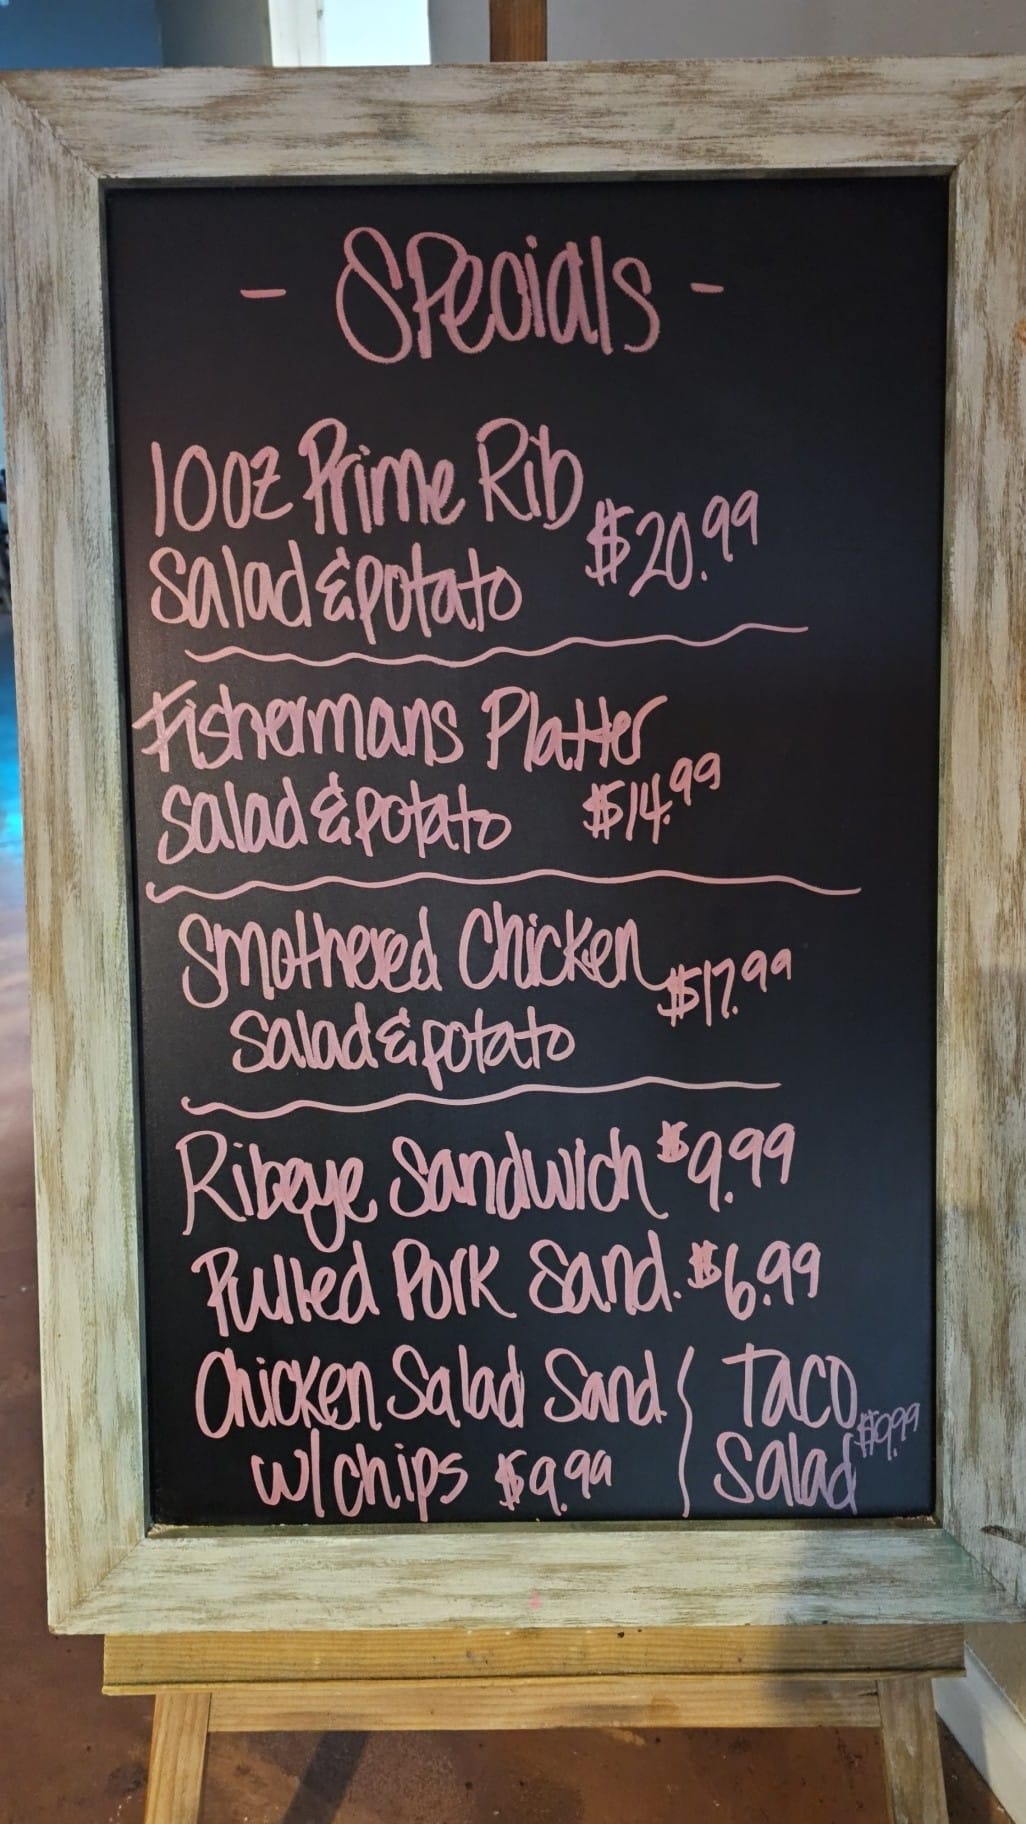 - Specials -
10oz Prime Rib
Salad & potato $20.99
Fishermans Platter
Salad & potato $14.99
Smothered Chicken
Salad & potato $17.99
Ribeye Sandwich $9.99
Pulled Pork Sand. $6.99
Chicken Salad Sand
w/chips $9.99
Taco
Salad $9.99